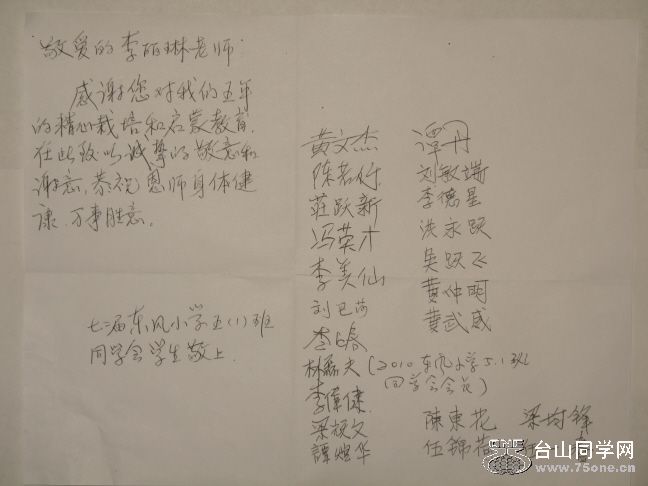 敬爱的李丽琳老师:
感谢您对我们五年
的精心栽培和启蒙教育,
在此致以诚挚的敬意和
谢意,恭祝恩师身体健
康,万事胜意。
七二届东风小学五(1)班
同学会学生敬上
黄文杰
陈若行
庄跃新
冯荣才
李美仙
刘
李春
林磊夫(2010东风小学5.1班
同学会会长)
李伟健
梁颂文
谭灿华
谭丹
刘敏端
李德星
洪永跃
吴跃飞
黄仲明
黄武威
陈东花 梁均锋
伍锦荷
台山同学网
www.75one.cn